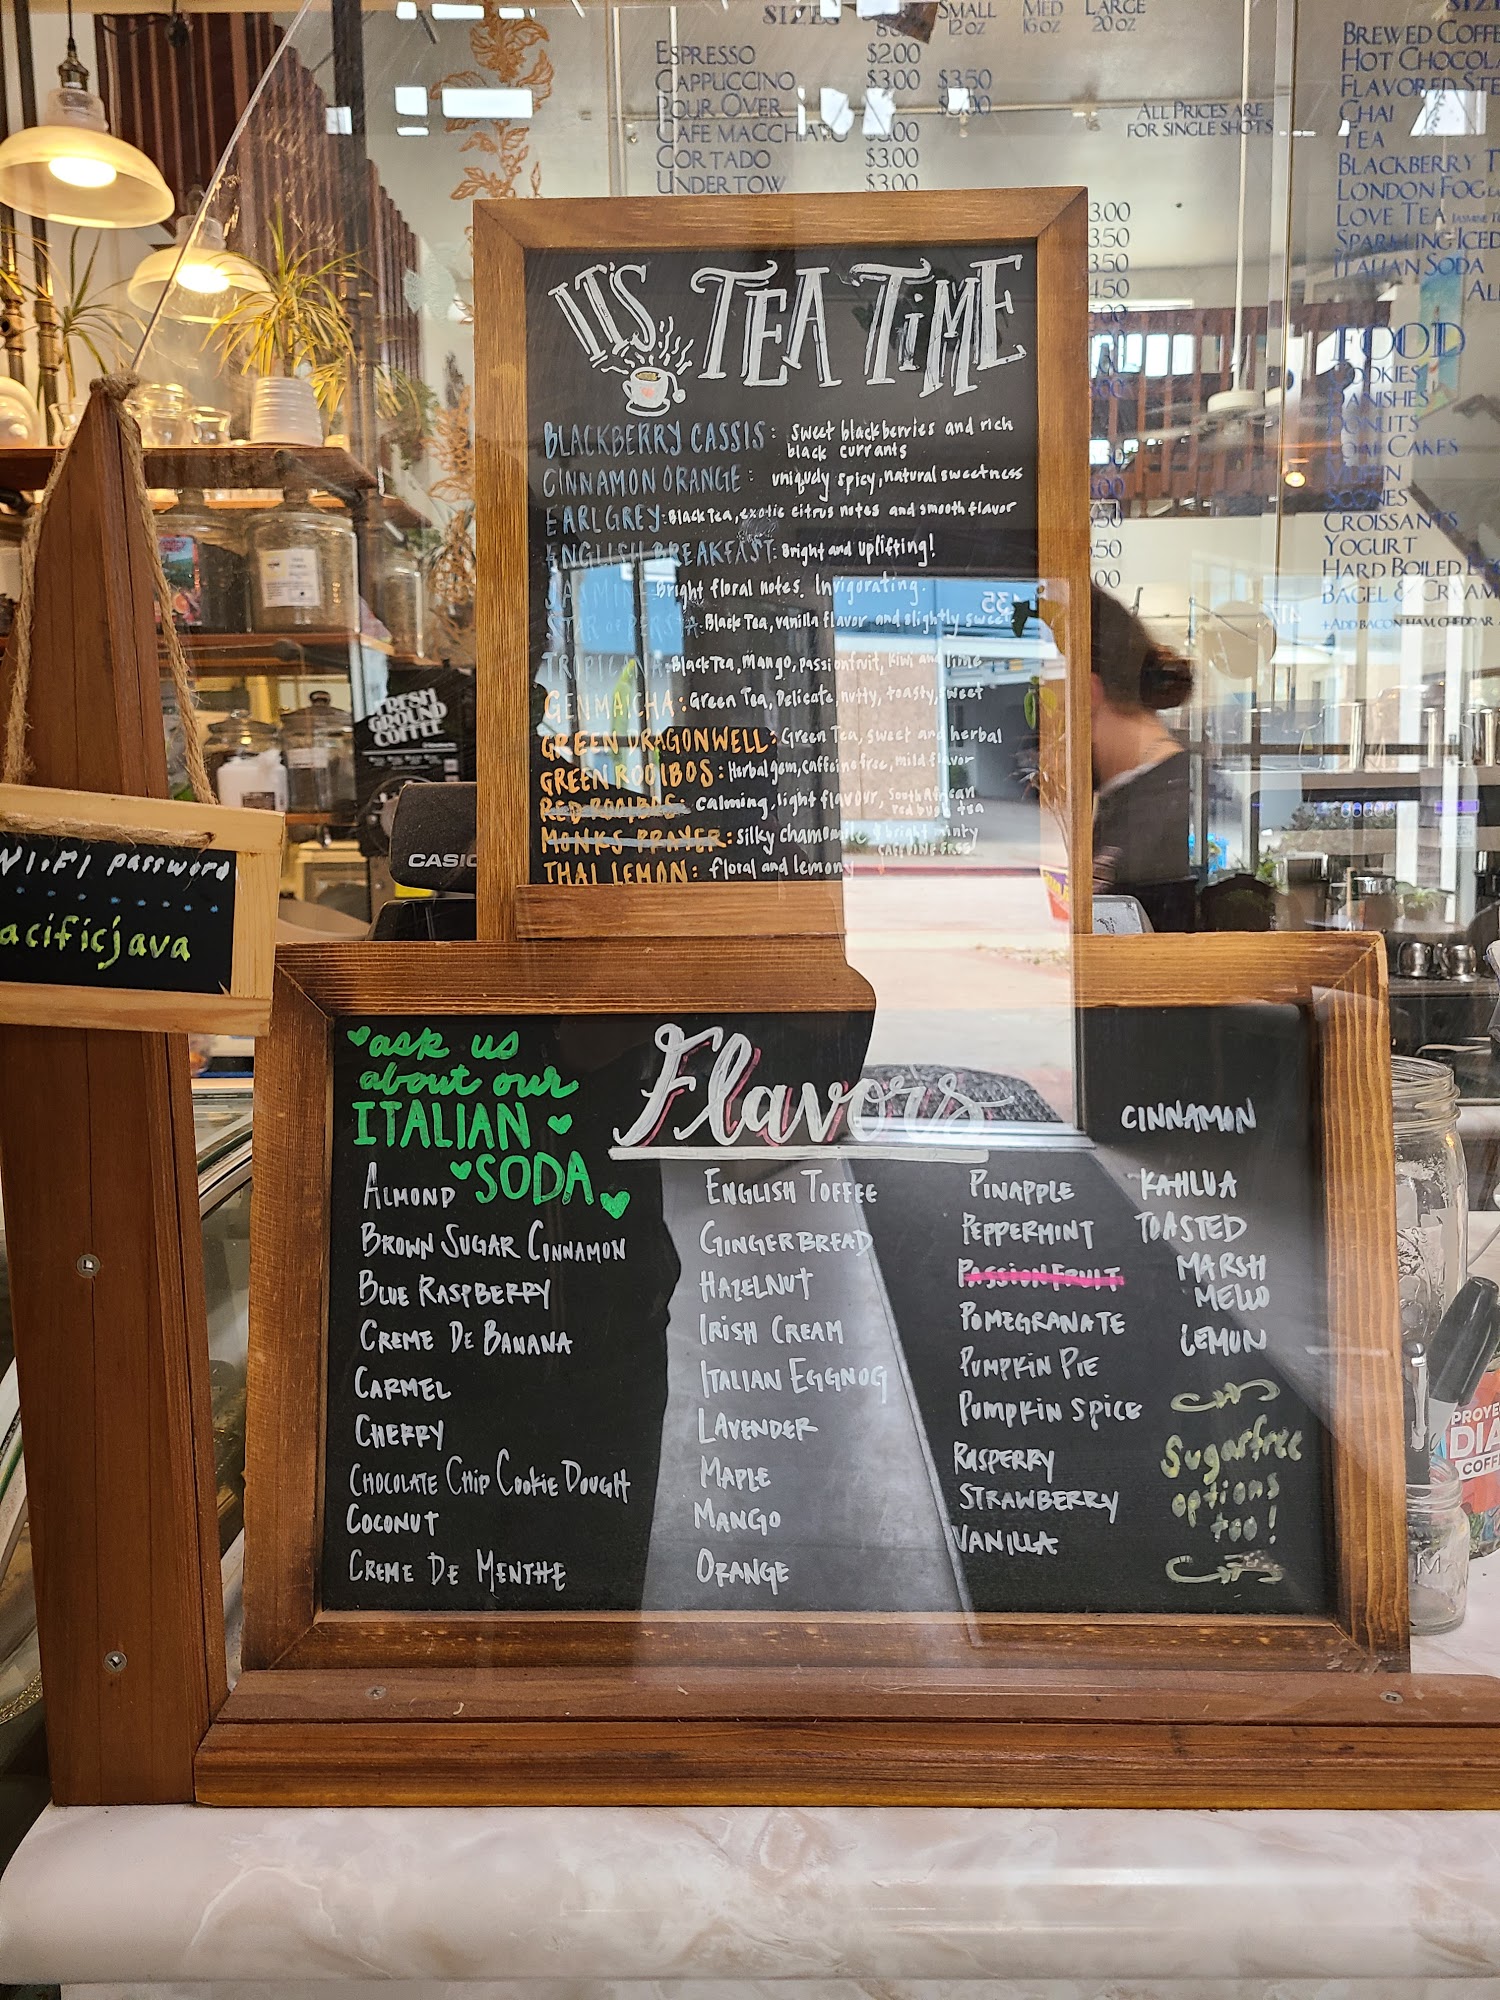 SIZES
SMALL MED LARGE
12 OZ 16 OZ 20 OZ
ESPRESSO $2.00
CAPPUCCINO $3.00 $3.50
POUR OVER
CAFE MACCHIATO
CORTADO $3.00
UNDERTOW $3.00
ALL PRICES ARE
FOR SINGLE SHOTS
BREWED COFFE
HOT CHOCOL
FLAVORED STE
CHAI
TEA
BLACKBERRY T
LONDON FOG
LOVE TEA
SPARKLING ICED
ITALIAN SODA
FOOD
COOKIES
DANISHES
DONUTS
CAKES
SCONES
CROISSANTS
YOGURT
HARD BOILED
BAGEL & CREAM
+ADD BACON HAM, CHEDDAR
IT'S TEA TIME
BLACKBERRY CASSIS: Sweet blackberries and rich
black currants
CINNAMON ORANGE: uniqudy spicy, natural sweetness
EARL GREY: Black Tea, exotic citrus notes and smooth flavor
ENGLISH BREAKFAST: Bright and uplifting!
JASMINE: Bright floral notes. Invigorating.
STAR OF PERSIA: Black Tea, vanilla flavor and slightly sweet
TROPICANA: Black Tea, Mango, passionfruit, kiwi and lime
GENMAICHA: Green Tea, Delicate, nutty, toasty, sweet
GREEN DRAGONWELL: Green Tea, sweet and herbal
GREEN ROOIBOS: Herbal gem, caffeine free, mild flavor
RED ROOIBOS: calming, light flavour, South African
red bush tea
MONKS PRAYER: silky chamomile & bright minty
CAFFEINE FREE
THAI LEMON: floral and lemony
FRESH
GROUND
COFFEE
CASIO
WI-FI password
acificjava
ask us
about our
ITALIAN
SODA
Flavors
ALMOND
BROWN SUGAR CINNAMON
BLUE RASPBERRY
CREME DE BANANA
CARMEL
CHERRY
CHOCOLATE CHIP COOKIE DOUGH
COCONUT
CREME DE MENTHE
ENGLISH TOFFEE
GINGERBREAD
HAZELNUT
IRISH CREAM
ITALIAN EGGNOG
LAVENDER
MAPLE
MANGO
ORANGE
PINAPPLE
PEPPERMINT
PASSIONFRUIT
POMEGRANATE
PUMPKIN PIE
PUMPKIN SPICE
RASPERRY
STRAWBERRY
VANILLA
CINNAMON
KAHLUA
TOASTED
MARSH
MELLO
LEMON
Sugarfree
options
too!
PROYE
DIA
COFF